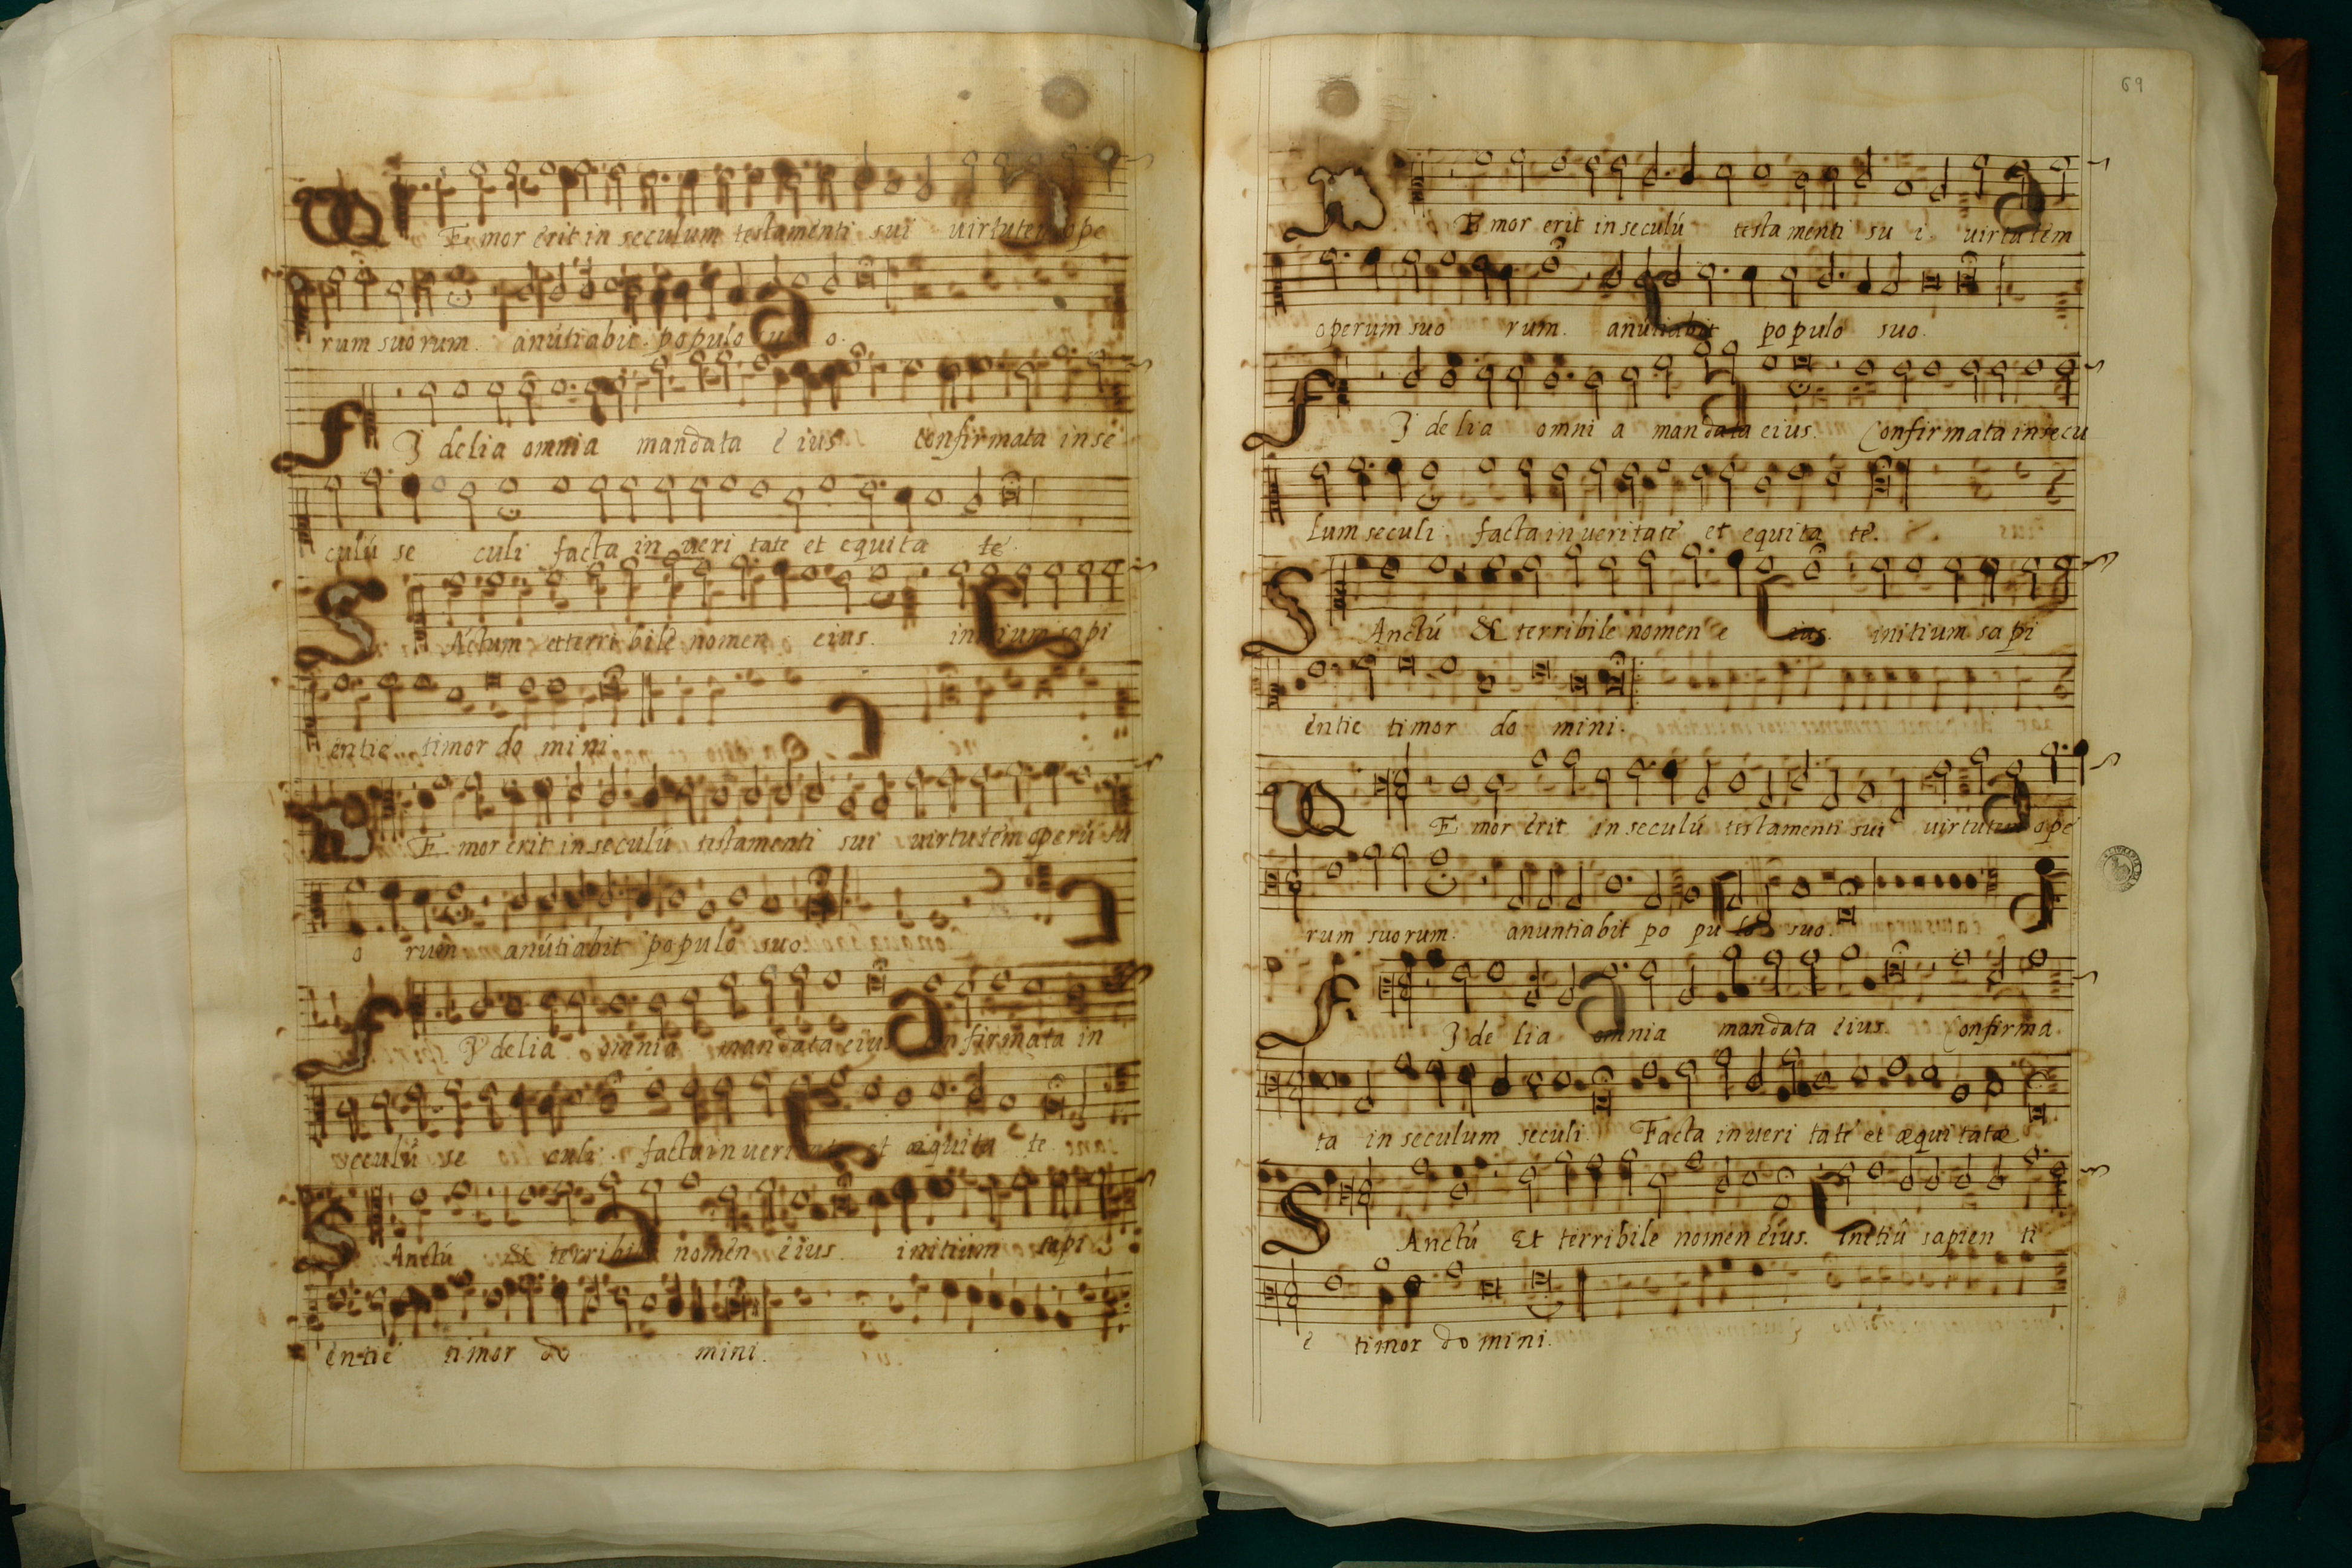 MEmor erit in seculum testamenti sui virtutem ope
rum suorum. anútiabit populo suo.
FIdelia omnia mandata eius confirmata in se
culú se culi facta in veri tate et equita te.
SAnctum et terribile nomen eius. initium sapi
entie timor do mini
MEmor erit in seculú testamenti sui virtutem operú su
o rum anútiabit populo suo.
FYdelia omnia mandata eius confirmata in
seculú se culi. facta in veritate et æquita te.
SAnctú & terribile nomen eius. initium sapi
entie timor do mini.
69
MEmor erit in seculú testamenti su i. virtutem
operum suo rum. anútiabit populo suo.
FIdelia omni a mandata eius. Confirmata in secu
lum seculi facta in veritate et equita te.
SAnctú & terribile nomen e ius. initium sapi
entie timor do mini.
MEmor erit in seculú testamenti sui virtutem ope
rum suorum. anuntiabit po pu lo suo.
FIde lia omnia mandata eius. Confirma
ta in seculum seculi. Facta in veri tate et æqui tatæ
SAnctú Et terribile nomen eius. Initiú sapien ti
e timor do mini.